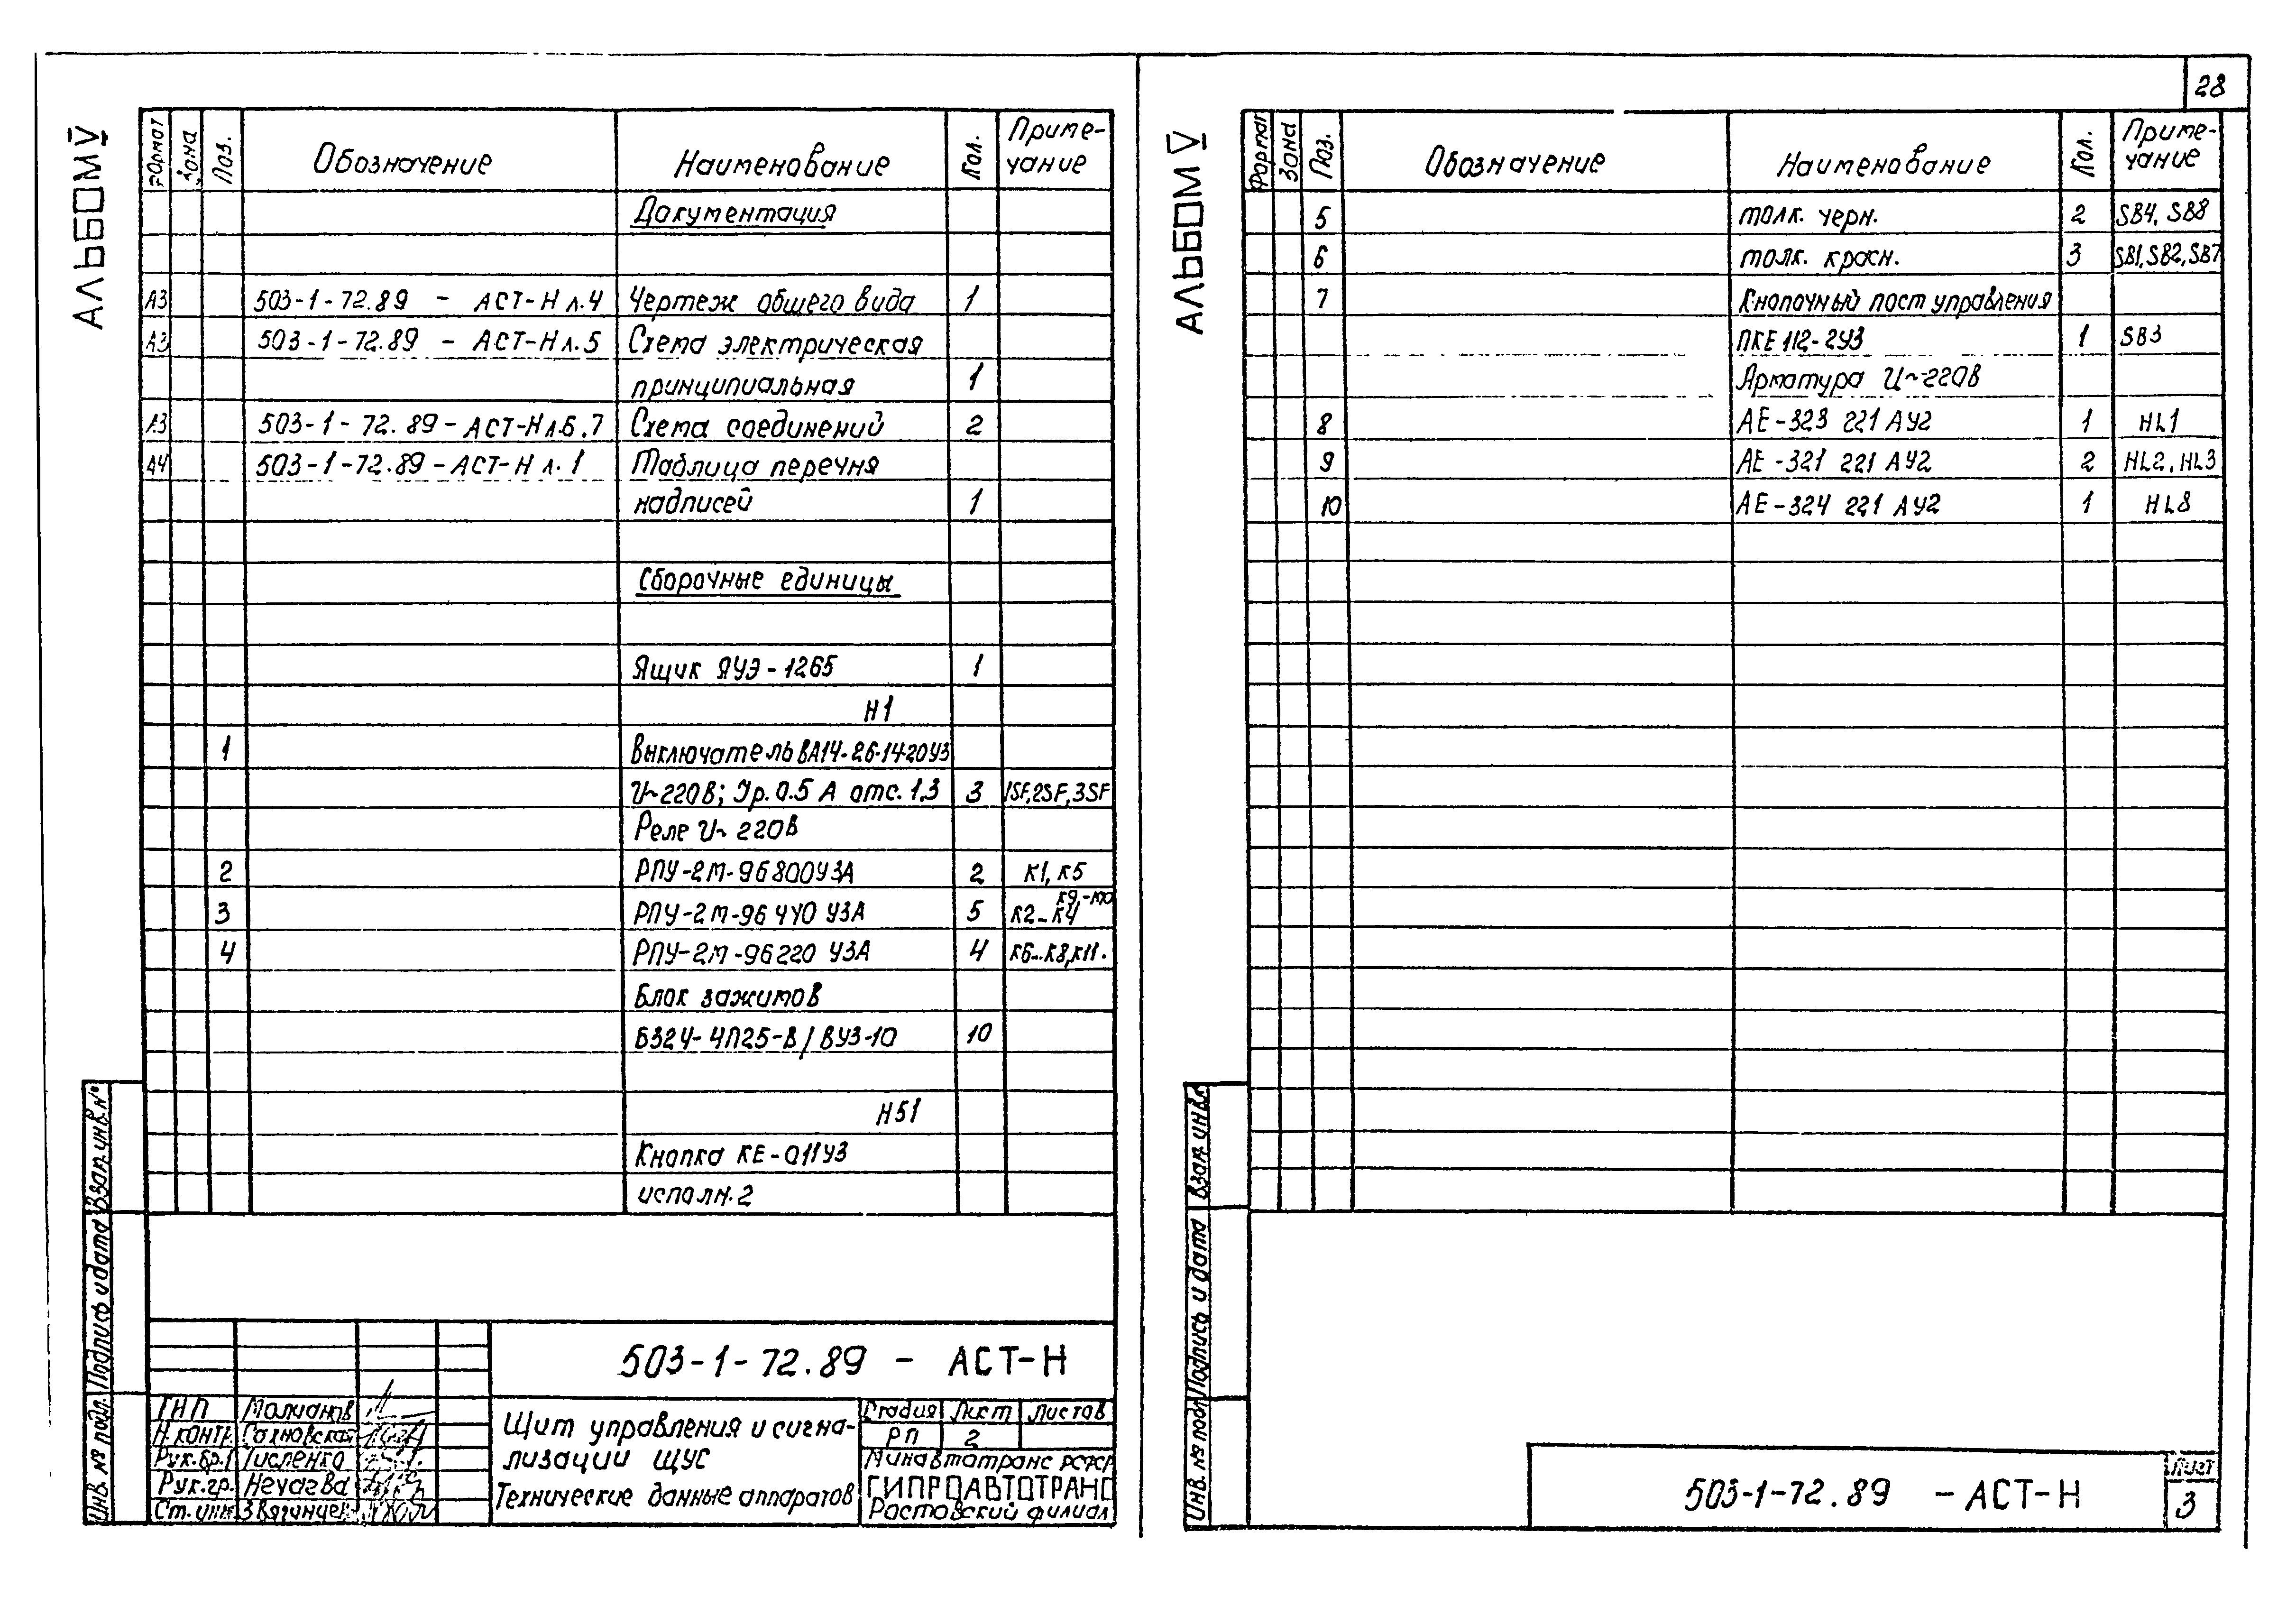 28
АЛЬБОМ V
Формат Зона Поз. Обозначение Наименование Кол. Приме-чание
Документация
А3 503-1-72.89 - АСТ-Н л.4 Чертеж общего вида 1
А3 503-1-72.89 - АСТ-Н л.5 Схема электрическая
принципиальная 1
А3 503-1-72.89-АСТ-Н л.6,7 Схема соединений 2
А4 503-1-72.89-АСТ-Н л.1 Таблица перечня
надписей 1
Сборочные единицы
Ящик ЯУЭ-1265 1
Н1
1 Выключатель ВА14-26-14-20У3
U~220В; Iр. 0.5 А отс. 1,3 3 1SF,2SF,3SF
Реле U~ 220В
2 РПУ-2М-96800У3А 2 К1, К5
3 РПУ-2М-96440 У3А 5 К2-К4 К9,-К10
4 РПУ-2М-96220 У3А 4 К6-К8,К11.
Блок зажимов
БЗ24-4П25-В/ВУ3-10 10
Н51
Кнопка КЕ-011У3
исполн.2
Инв. № подл. Подпись и дата Взам. инв. №
503-1-72.89 - АСТ-Н
ГИП
Н.контр. Сохновская
Рук.бр. Лисленко
Рук.гр.
Ст.инж.
Щит управления и сигна-
лизации ЩУС
Технические данные аппаратов
Стадия Лист Листов
РП 2
Минавтотранс РСФСР
ГИПРОАВТОТРАНС
Ростовский филиал
АЛЬБОМ V
Формат Зона Поз. Обозначение Наименование Кол. Приме-чание
5 толк. черн. 2 SB4, SB8
6 толк. красн. 3 SB1,SB2,SB7
7 Кнопочный пост управления
ПКЕ 112-2У3 1 SB3
Арматура U~220В
8 АЕ-323 221 АУ2 1 HL1
9 АЕ-321 221 АУ2 2 HL2, HL3
10 АЕ-324 221 АУ2 1 HL8
Инв. № подл. Подпись и дата Взам. инв.№
503-1-72.89 - АСТ-Н
Лист
3